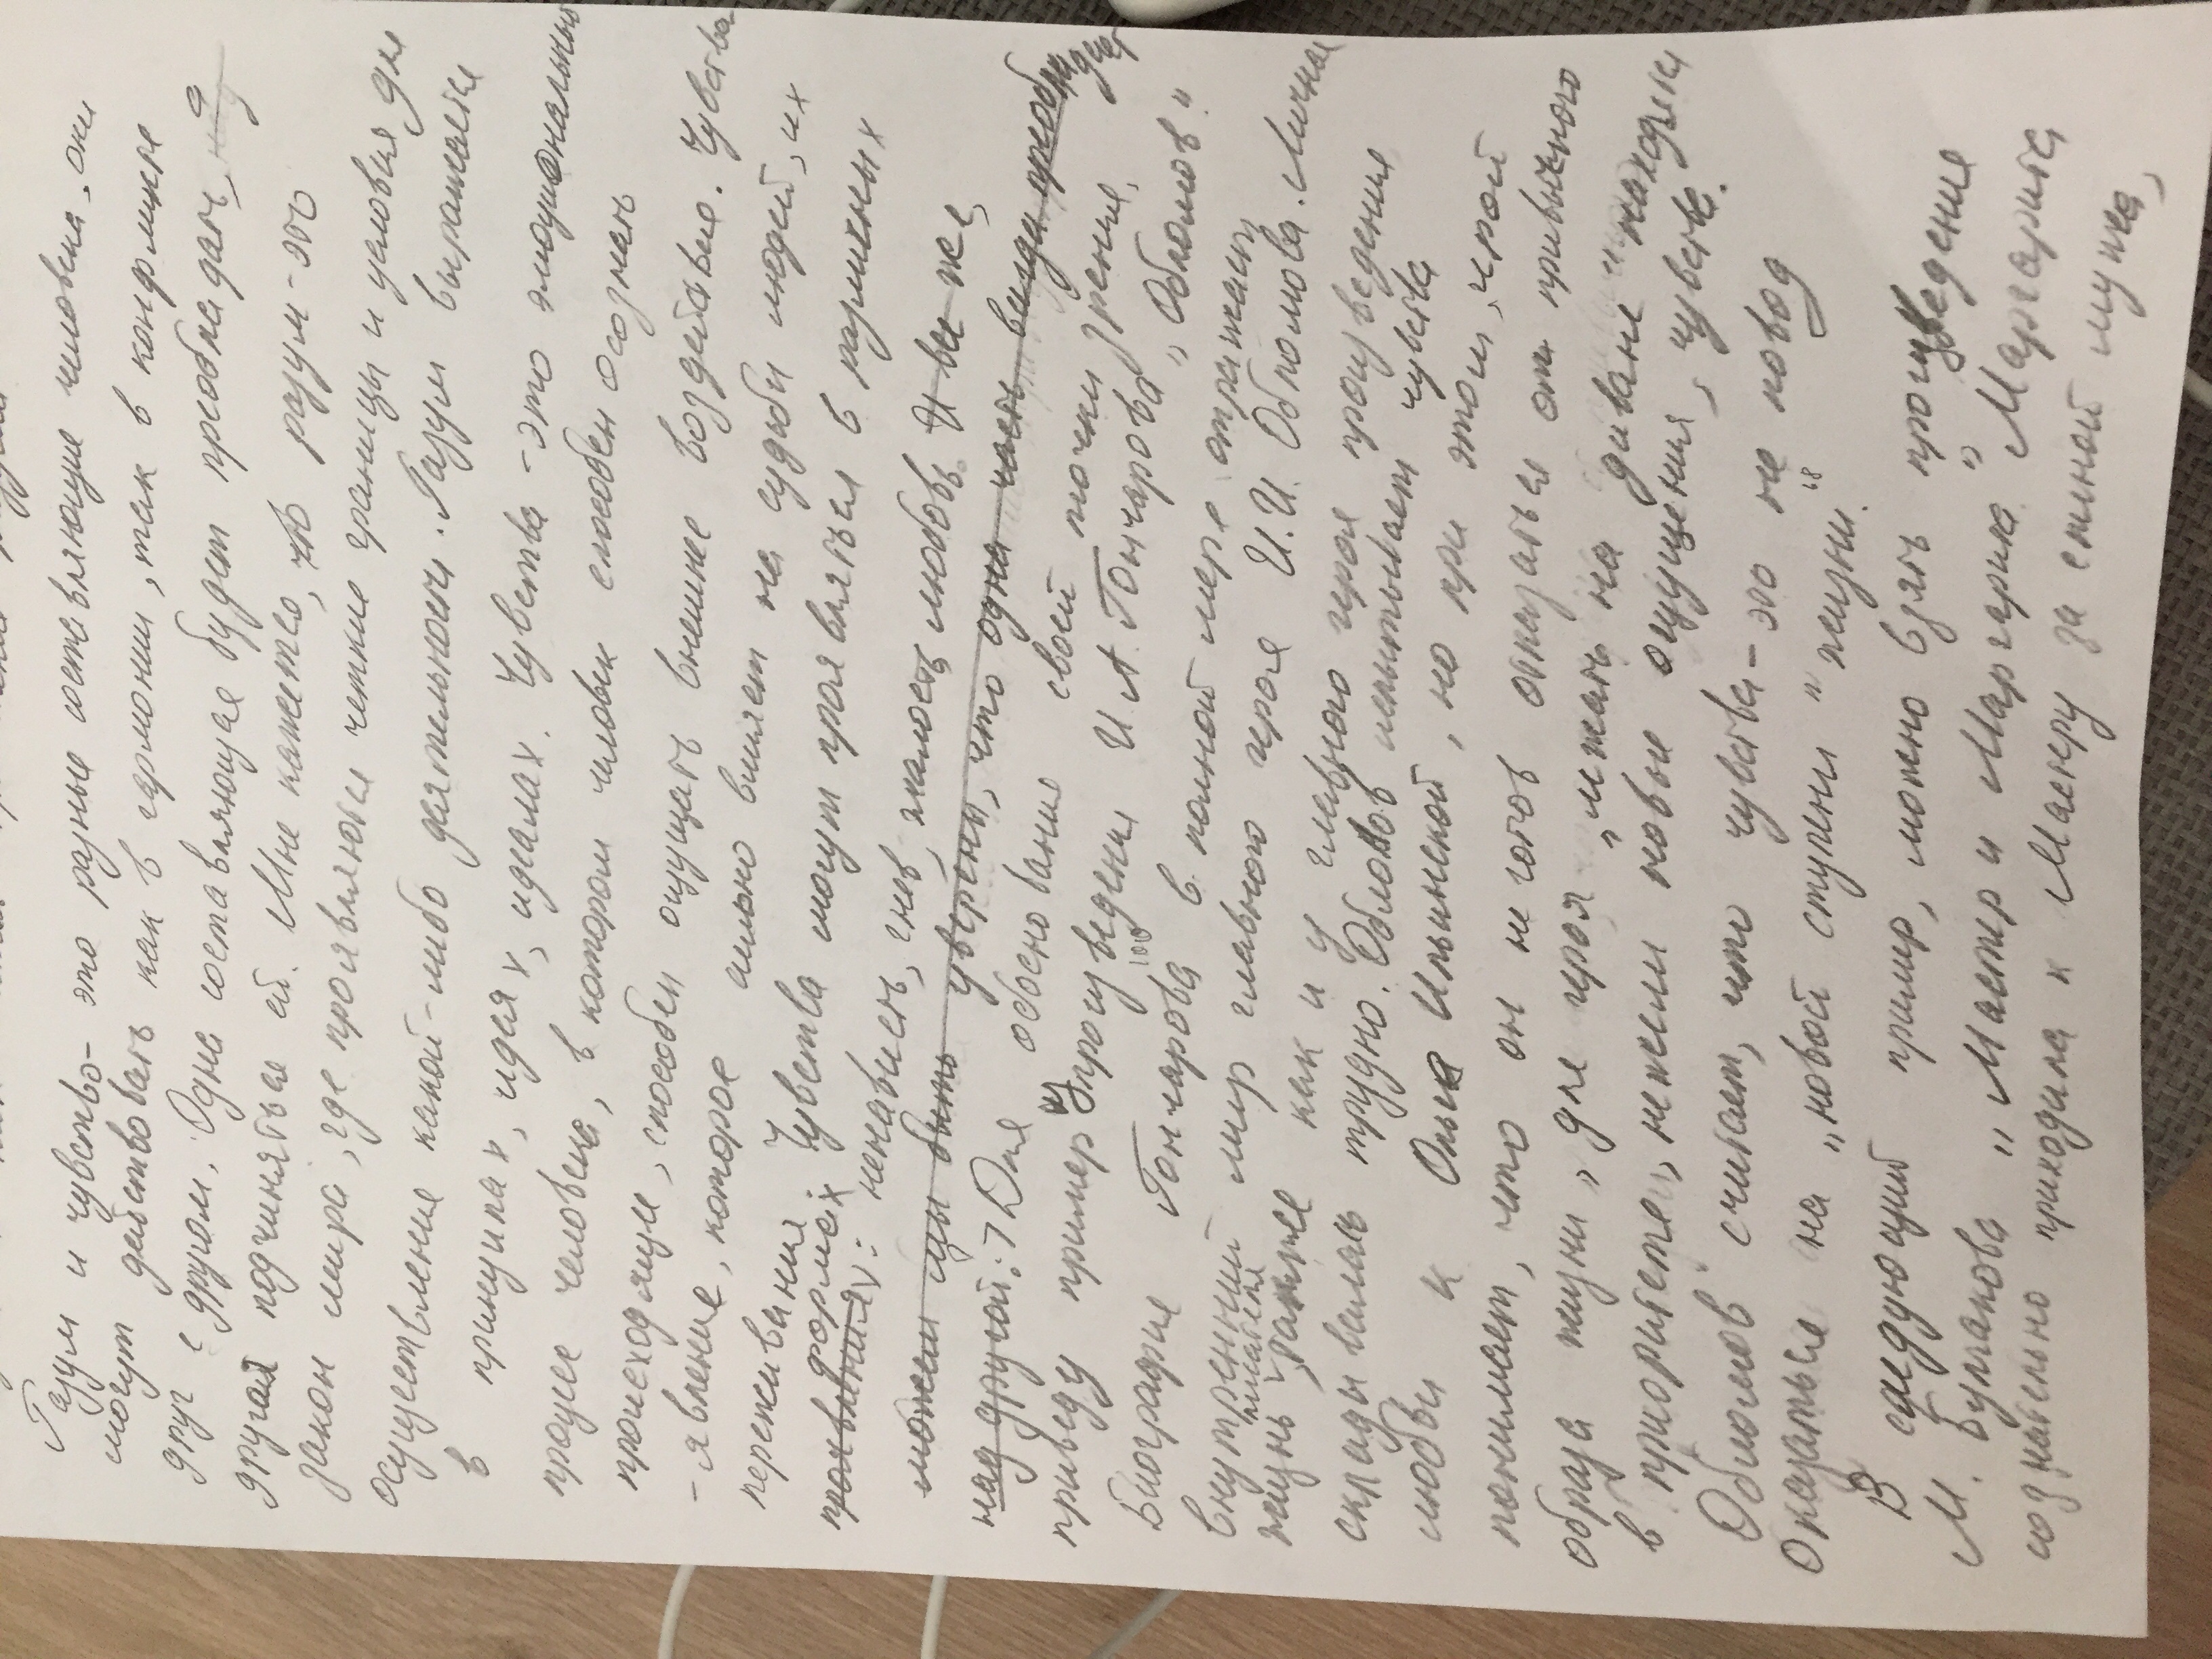 Разум и чувство- это разные составляющие человека. Они
могут действовать как в гармонии, так в конфликте
друг с другом. Одна составляющая будет преобладать, а
другая подчиняться ей. Мне кажется, что разум - это
закон мира, где проявляются четкие границы и условия для
осуществления какой-либо деятельности. Разум выражается
в принципах, идеях, идеалах. Чувства - это эмоциональный
процесс человека, в котором человек способен осознать
происходящее, способен ощущать внешнее воздействие. Чувства
- явление, которое сильно влияет на судьбы людей, их
переживания. Чувства могут проявляться в различных
проявлениях формах: ненависть, гнев, жалость, любовь. И все же,
можем мы быть уверены, что одна часть всегда преобладает
над другой: Для обоснования своей точки зрения,
приведу пример из произведения И.А. Гончарова „Обломов".
Биография Гончарова в полной мере отражает
внутренний мир главного героя И.И. Обломова. Личная
жизнь писателя, также как и у главного героя произведения
складывалась трудно. Обломов испытывает чувства
любви к Ольге Ильинской, но при этом, герой
понимает, что он не готов отказаться от привычного
образа жизни, для героя „лежать на диване" находится
в приоритете, нежели новые ощущения, чувства.
Обломов считает, что чувства - это не повод
оказаться на „новой ступени" в жизни.
В следующий пример, можно взять произведение
М. Булгакова „Мастер и Маргарита" Маргарита
сознательно приходила к Мастеру за спиной мужа,